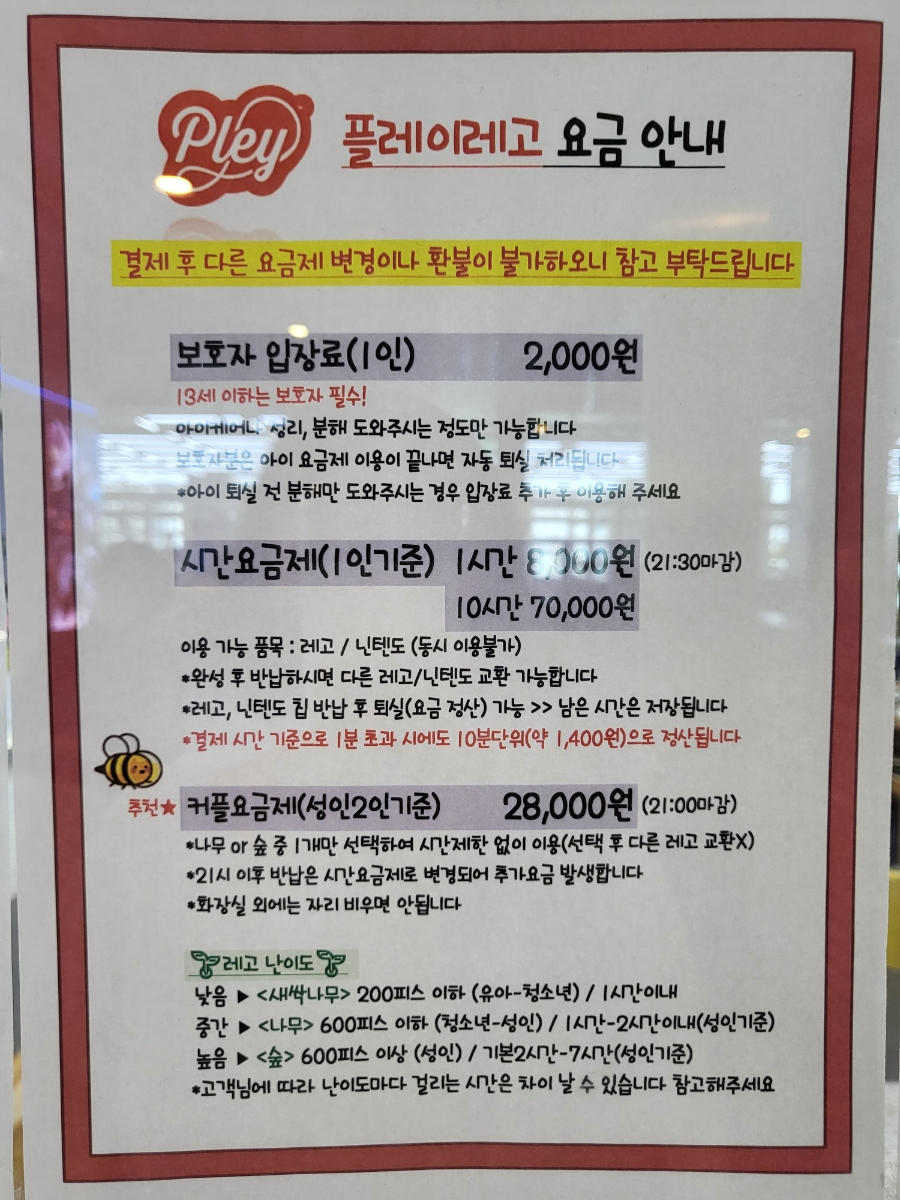 Pley
플레이레고 요금 안내
결제 후 다른 요금제 변경이나 환불이 불가하오니 참고 부탁드립니다
보호자 입장료(1인) 2,000원
13세 이하는 보호자 필수!
아이케어나 정리, 분해 도와주시는 정도만 가능합니다
보호자분은 아이 요금제 이용이 끝나면 자동 퇴실 처리됩니다
*아이 퇴실 전 분해만 도와주시는 경우 입장료 추가 후 이용해 주세요
시간요금제(1인기준) 1시간 8,000원 (21:30마감)
10시간 70,000원
이용 가능 품목 : 레고 / 닌텐도 (동시 이용불가)
*완성 후 반납하시면 다른 레고/닌텐도 교환 가능합니다
*레고, 닌텐도 칩 반납 후 퇴실(요금 정산) 가능 >> 남은 시간은 저장됩니다
*결제 시간 기준으로 1분 초과 시에도 10분단위(약 1,400원)으로 정산됩니다
추천★ 커플요금제(성인2인기준) 28,000원 (21:00마감)
*나무 or 숲 중 1개만 선택하여 시간제한 없이 이용(선택 후 다른 레고 교환X)
*21시 이후 반납은 시간요금제로 변경되어 추가요금 발생합니다
*화장실 외에는 자리 비우면 안됩니다
레고 난이도
낮음 ▶ <새싹나무> 200피스 이하 (유아-청소년) / 1시간이내
중간 ▶ <나무> 600피스 이하 (청소년-성인) / 1시간-2시간이내(성인기준)
높음 ▶ <숲> 600피스 이상 (성인) / 기본2시간-7시간(성인기준)
*고객님에 따라 난이도마다 걸리는 시간은 차이 날 수 있습니다 참고해주세요